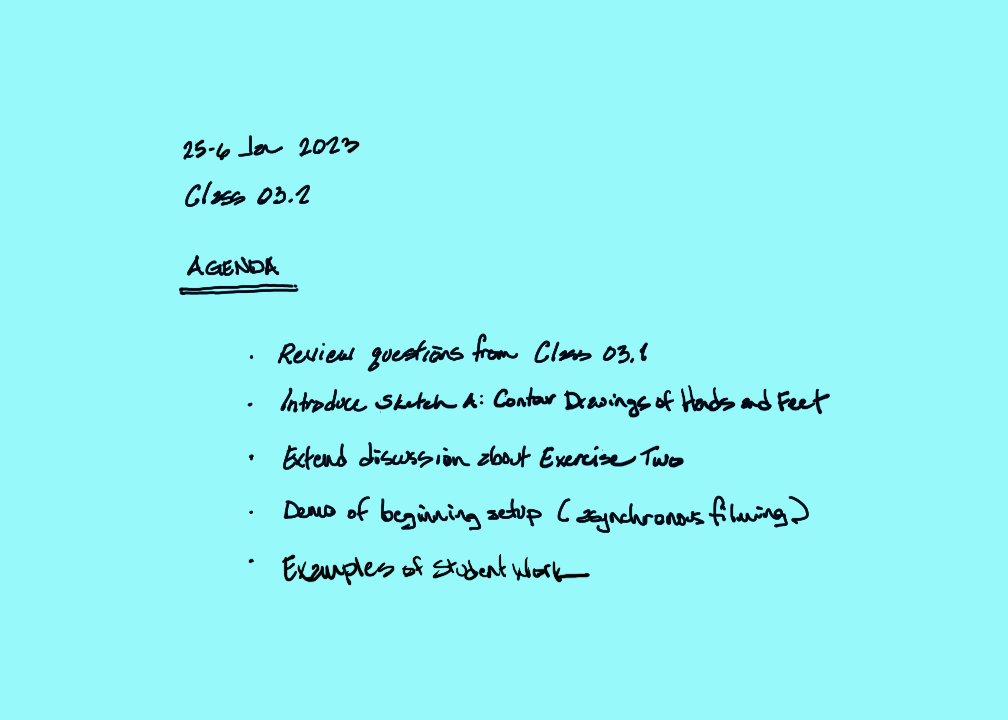 25-6 Jan 2023
Class 03.2
AGENDA
· Review questions from Class 03.1
· Introduce Sketch A: Contour Drawings of Hands and Feet
· Extend discussion about Exercise Two
· Demo of beginning setup (asynchronous filming)
· Examples of Student Work